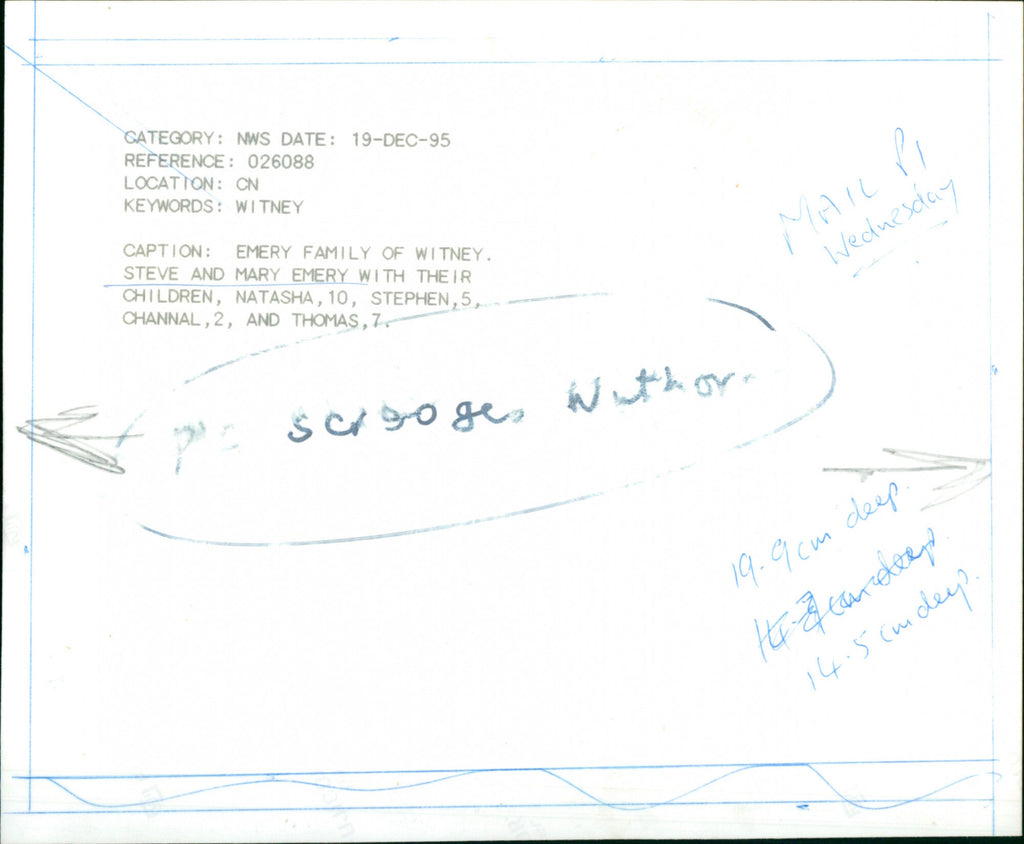 CATEGORY: NWS DATE: 19-DEC-95
REFERENCE: 026088
LOCATION: CN
KEYWORDS: WITNEY
CAPTION: EMERY FAMILY OF WITNEY.
STEVE AND MARY EMERY WITH THEIR
CHILDREN, NATASHA,10, STEPHEN,5,
CHANNAL,2, AND THOMAS,7.
MAIL P1
Wednesday
scrooges
19.9cm deep.
deep.
14.5cm deep.